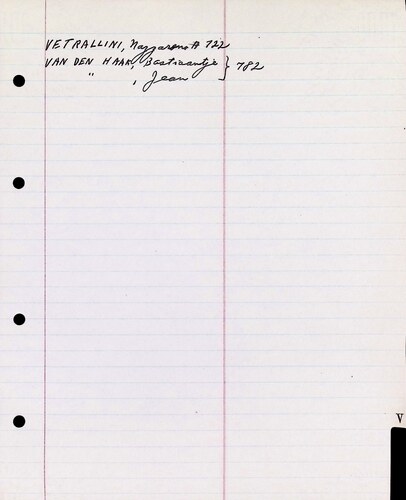 VETRALLINI, Nazzareno # 722
VAN DEN HAAK, Bastiaantje } 782
" , Jean
V